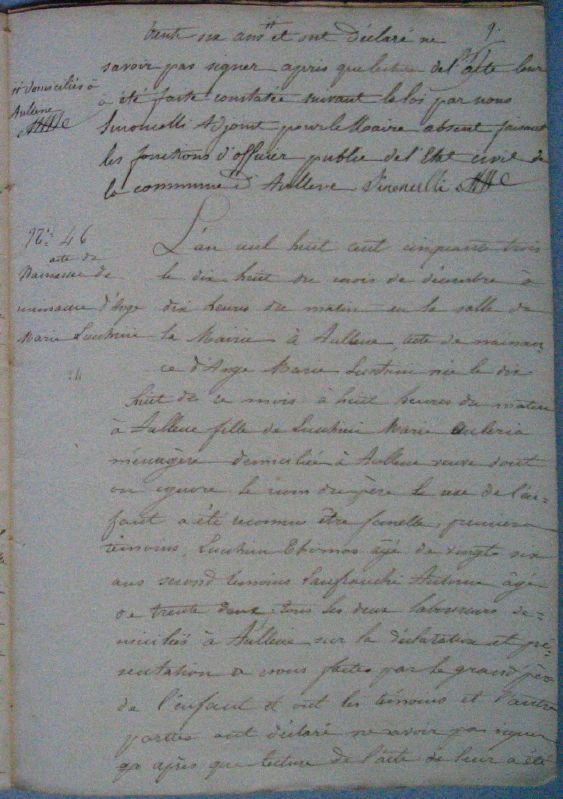 trente six ans et ont déclaré ne
savoir pas signer après que lecture de l'acte leur
a été faite constatée suivant la loi par nous
adjoint pour le Maire absent faisant
les fonctions d'officier public de l'Etat civil de
la commune d'Aullene
domiciliés à
Aullene
N° 46
acte de
naissance d'Ange
Marie Lucchini
L'an mil huit cent cinquante trois
le dix huit du mois de décembre à
dix heures du matin en la salle de
la Mairie à Aullene, acte de naissan-
ce d'Ange Marie Lucchini née le dix
huit de ce mois à huit heures du matin
à Aullene fille de Lucchini Marie
ménagère domiciliée à Aullene veuve dont
on ignore le nom du père le sexe de l'en=
fant a été reconnu être femelle, premier
témoins, Lucchini Thomas âgé de vingt six
ans second témoins Antoine âgé
de trente deux tous les deux laboureurs do=
miciliés à Aullene sur la déclaration et pré=
sentation à nous faites par le grand père
de l'enfant et ont les témoins et l'autre
parties ont déclaré ne savoir pas signe
après que lecture de l'acte de leur a été